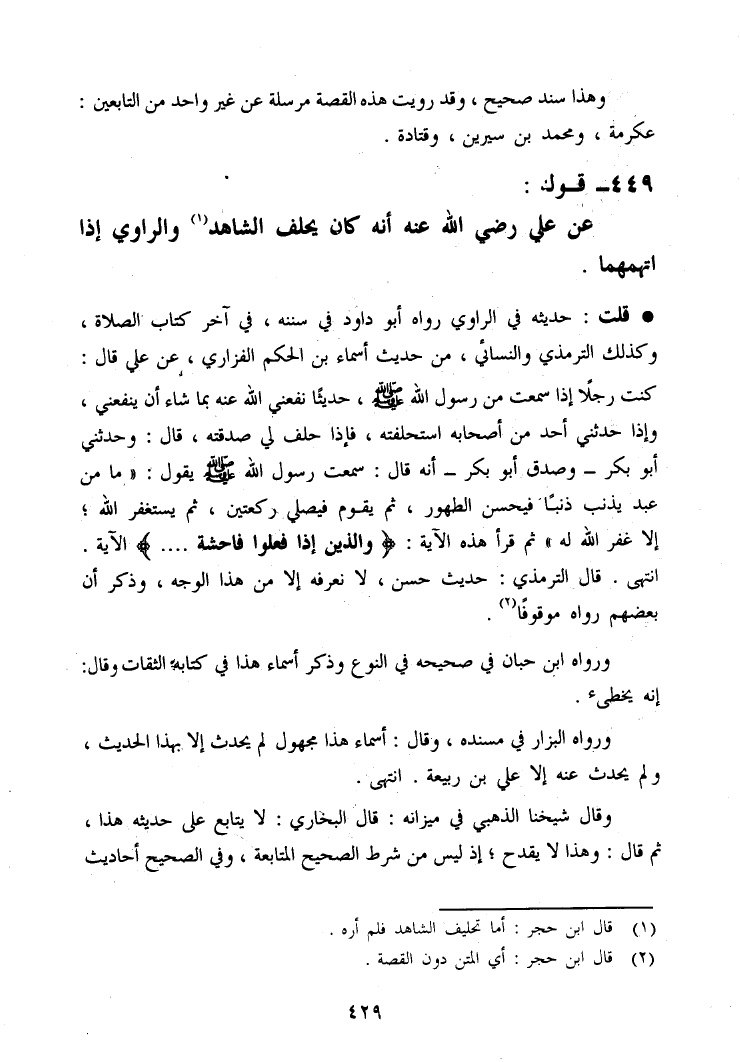 وهذا سند صحيح ، وقد رويت هذه القصة مرسلة عن غير واحد من التابعين :
عكرمة ، ومحمد بن سيرين ، وقتادة .
٤٤٩ـ قـولـه :
عن علي رضي الله عنه أنه كان يحلف الشاهد(١) والراوي إذا
اتهمهما .
● قلت : حديثه في الراوي رواه أبو داود في سننه ، في آخر كتاب الصلاة ،
وكذلك الترمذي والنسائي ، من حديث أسماء بن الحكم الفزاري ، عن علي قال :
كنت رجلًا إذا سمعت من رسول الله ﷺ ، حديثًا نفعني الله عنه بما شاء أن ينفعني ،
وإذا حدثني أحد من أصحابه استحلفته ، فإذا حلف لي صدقته ، قال : وحدثني
أبو بكر ـ وصدق أبو بكر ـ أنه قال : سمعت رسول الله ﷺ يقول : « ما من
عبد يذنب ذنبًا فيحسن الطهور ، ثم يقوم فيصلي ركعتين ، ثم يستغفر الله ؛
إلا غفر الله له » ثم قرأ هذه الآية : ﴿ والذين إذا فعلوا فاحشة .... ﴾ الآية .
انتهى . قال الترمذي : حديث حسن ، لا نعرفه إلا من هذا الوجه ، وذكر أن
بعضهم رواه موقوفًا(٢) .
ورواه ابن حبان في صحيحه في النوع وذكر أسماء هذا في كتابه الثقات وقال:
إنه يخطىء .
ورواه البزار في مسنده ، وقال : أسماء هذا مجهول لم يحدث إلا بهذا الحديث ،
ولم يحدث عنه إلا علي بن ربيعة . انتهى .
وقال شيخنا الذهبي في ميزانه : قال البخاري : لا يتابع على حديثه هذا ،
ثم قال : وهذا لا يقدح ؛ إذ ليس من شرط الصحيح المتابعة ، وفي الصحيح أحاديث
(١) قال ابن حجر : أما تحليف الشاهد فلم أره .
(٢) قال ابن حجر : أي المتن دون القصة .
٤٢٩